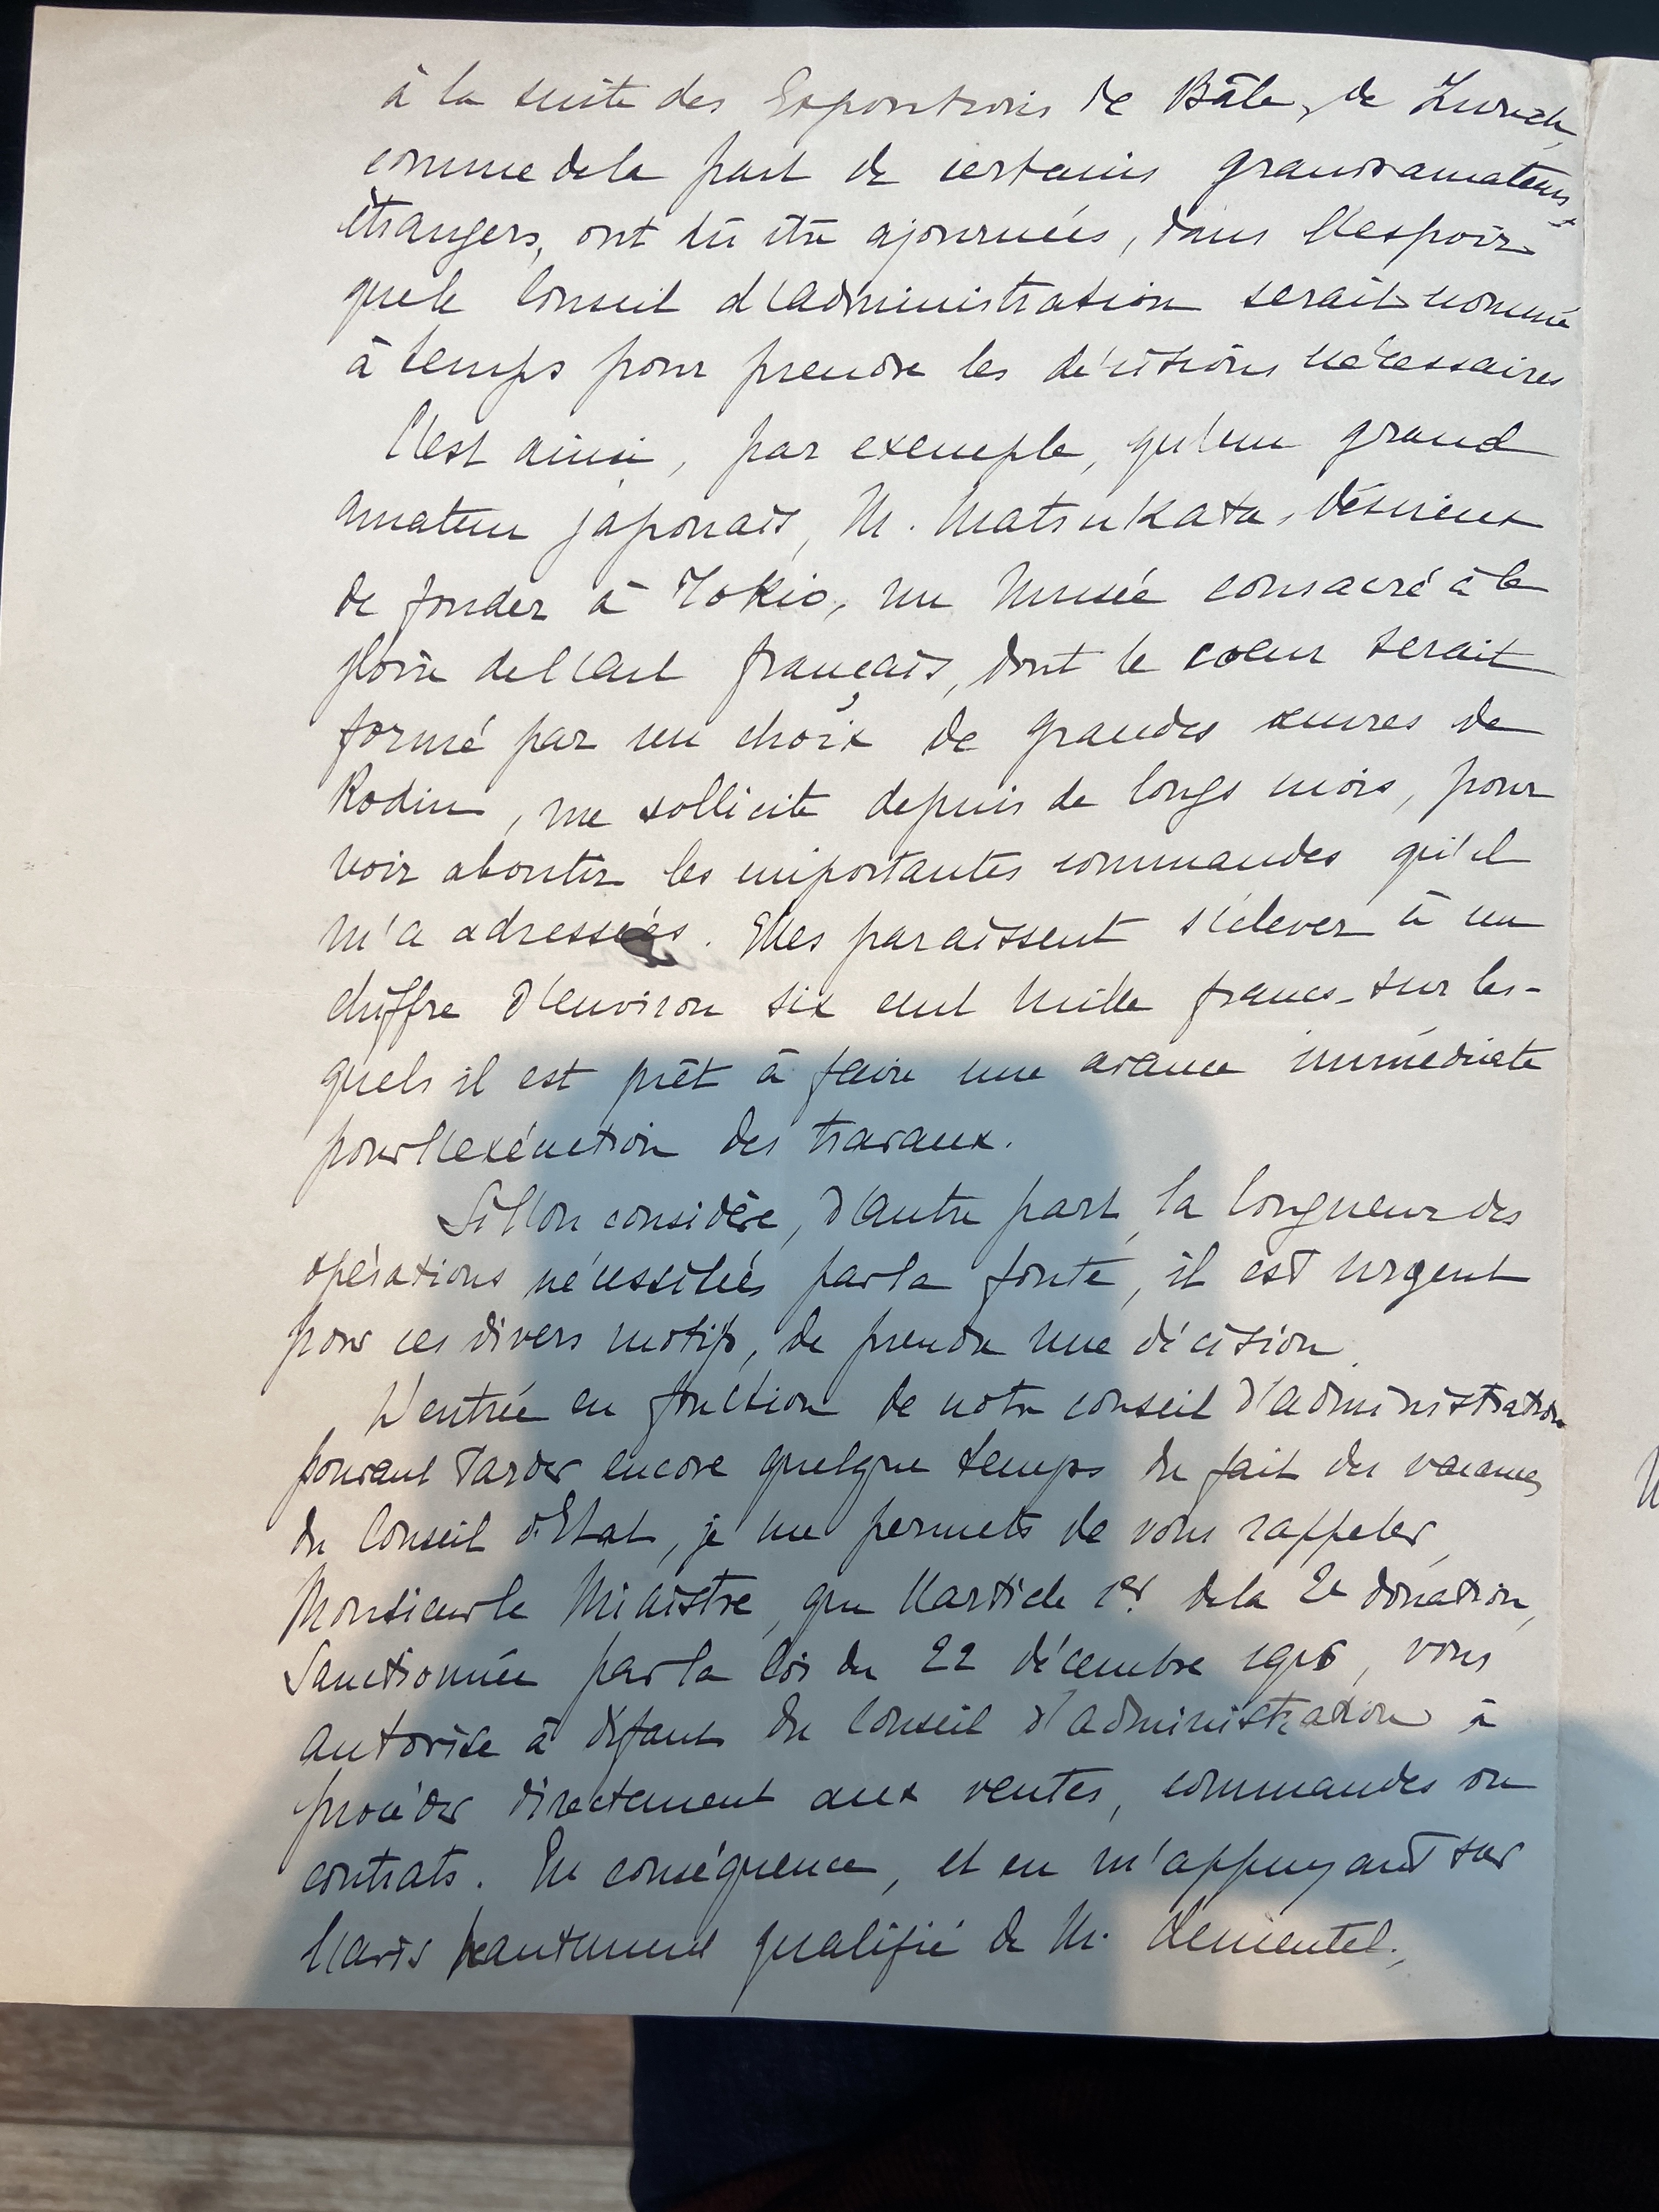 à la suite des Expositions de Bâle, de Zurich,
comme de la part de certains grands amateurs
étrangers, ont dû être ajournées, dans l'espoir
que le Conseil d'administration serait nommé
à temps pour prendre les décisions nécessaires
C'est ainsi, par exemple, qu'un grand
amateur japonais, M. Matsukata, désireux
de fonder à Tokio, un Musée consacré à la
gloire de l'art français, dont le coeur serait
formé par un choix de grandes œuvres de
Rodin, me sollicite depuis de longs mois, pour
voir aboutir les importantes commandes qu'il
m'a adressées. Elles paraissent s'élever à un
chiffre d'environ six cent mille francs sur les-
quels il est prêt à faire une avance immédiate
pour l'exécution des travaux.
Si l'on considère, d'autre part, la longueur des
opérations nécessitées par la fonte, il est urgent
pour ces divers motifs, de prendre une décision.
L'entrée en fonction de notre conseil d'administration
pouvant tarder encore quelque temps du fait des vacances
du Conseil d'Etat, je me permets de vous rappeler,
Monsieur le Ministre, que l'article 1er de la 2e donation,
sanctionnée par la loi du 22 décembre 1916, vous
autorise à défaut du Conseil d'administration à
procéder directement aux ventes, commandes ou
contrats. En conséquence, et en m'appuyant sur
l'avis hautement qualifié de M.